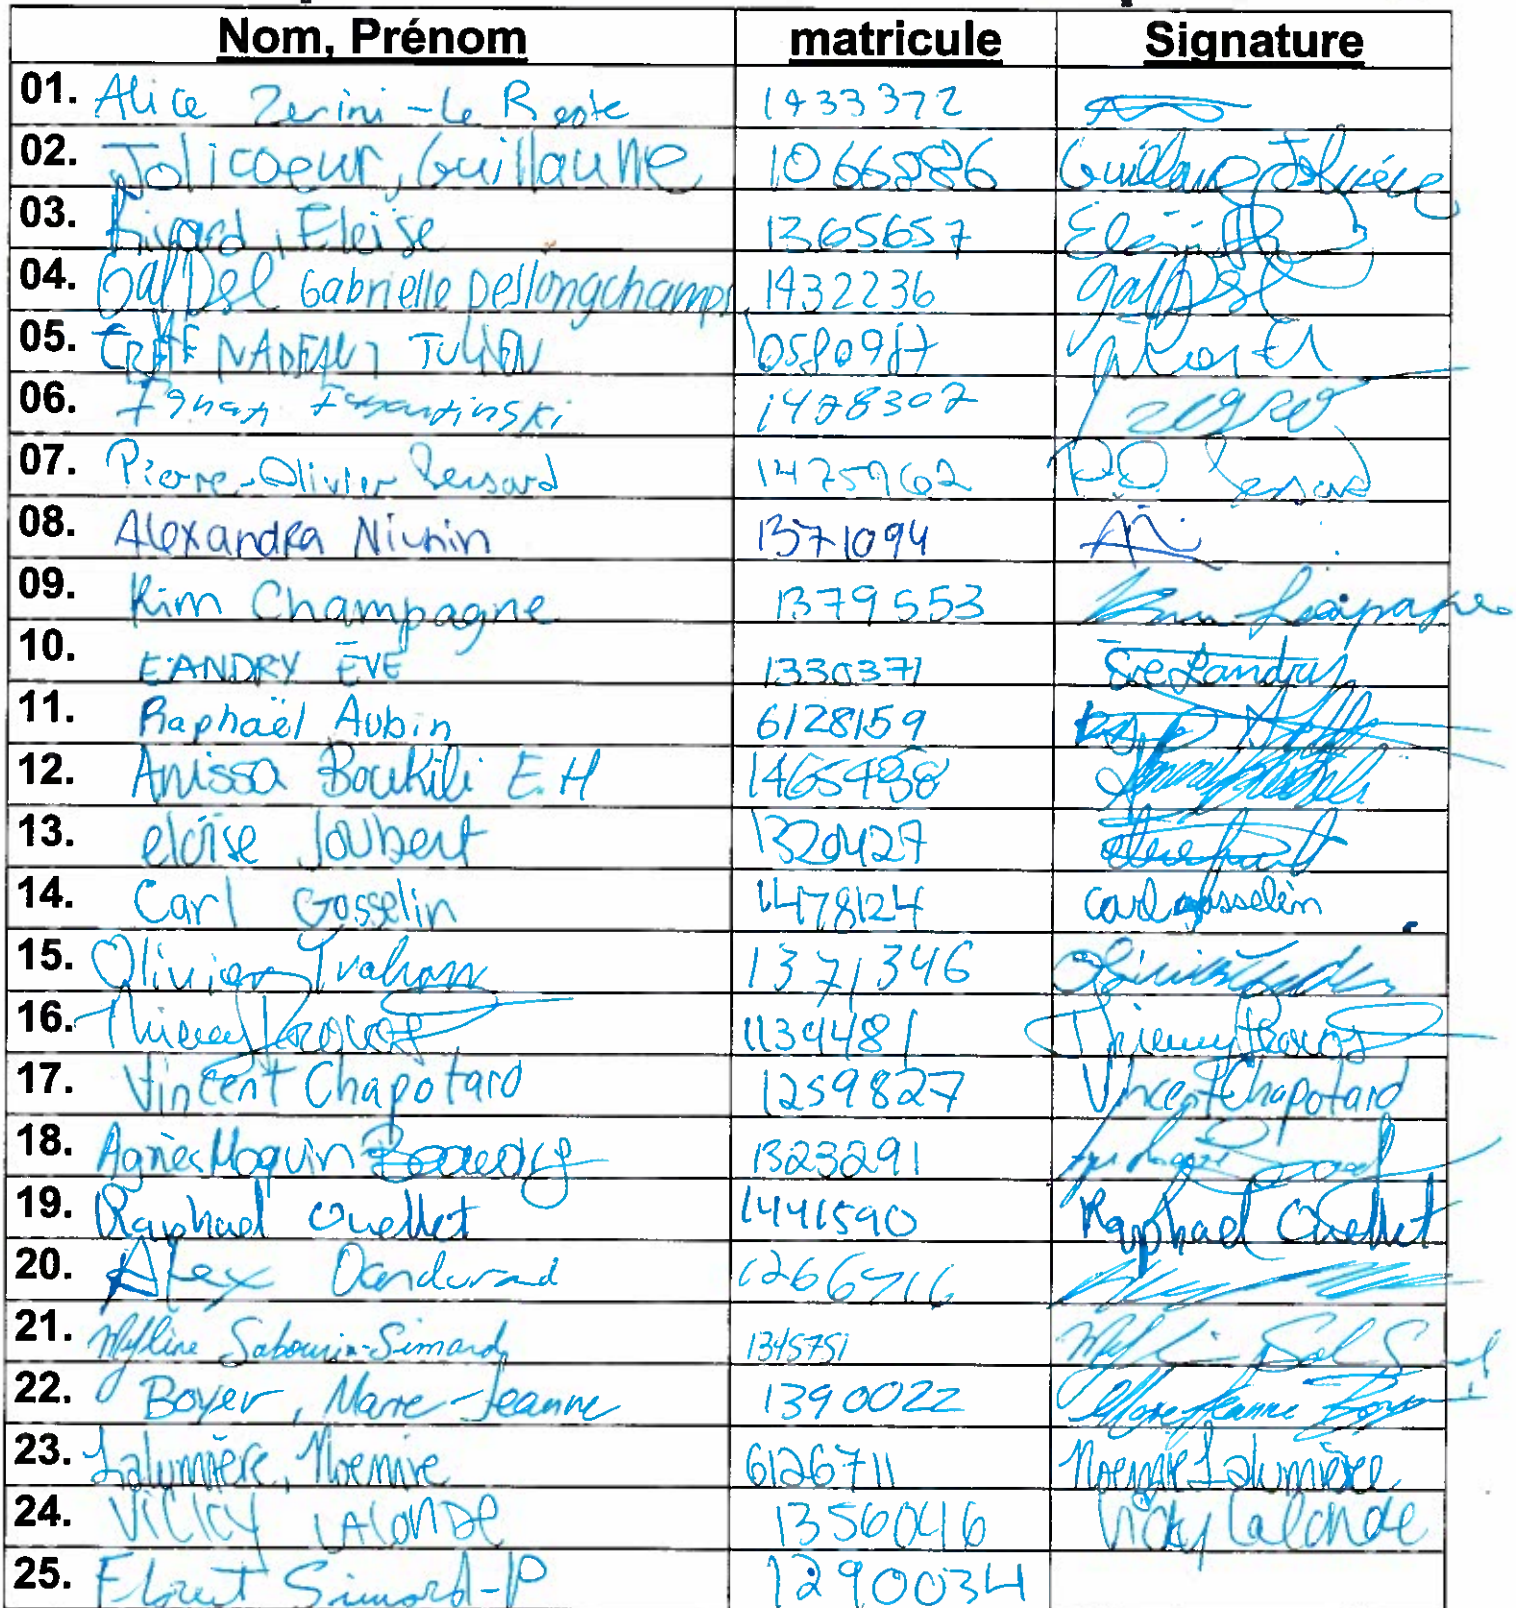 Nom, Prénom matricule Signature
01. Alice Zerini-Le Reste 1433372
02. Jolicoeur, Guillaume 1066886 Guillaume Jolicoeur
03. Rivard, Eloïse 1365657
04. GabDel Gabrielle Deslongchamps 1432236 GabDel
05. NADEAU JULIEN 0580987
06. 1478302
07. Pierre-Olivier Lessard 1475962 P.O. Lessard
08. Alexandra Niunin 1371094
09. Kim Champagne 1379553 Kim Champagne
10. LANDRY ÈVE 1330371 Ève Landry
11. Raphaël Aubin 6128159
12. Anissa Boukili E.H 1465498
13. eloïse Joubert 1320427
14. Carl Gosselin 1478124 Carl gosselin
15. Olivier 1371346 Olivier
16. Thierry Provost 1139481 Thierry Provost
17. Vincent Chapotard 1259827 Vincent Chapotard
18. Agnès Moquin 1323291
19. Raphael Ouellet 1441590 Raphael Ouellet
20. Alex Dandurand 1266716
21. Mylène Sabourin-Simard 1345751
22. Boyer, Marie-Jeanne 1390022 Marie Jeanne Boyer
23. Lalumière, Noémie 6126711 Noémie Lalumière
24. Vicky LALONDE 1356046 Vicky Lalonde
25. Florent Simard-P 1290034